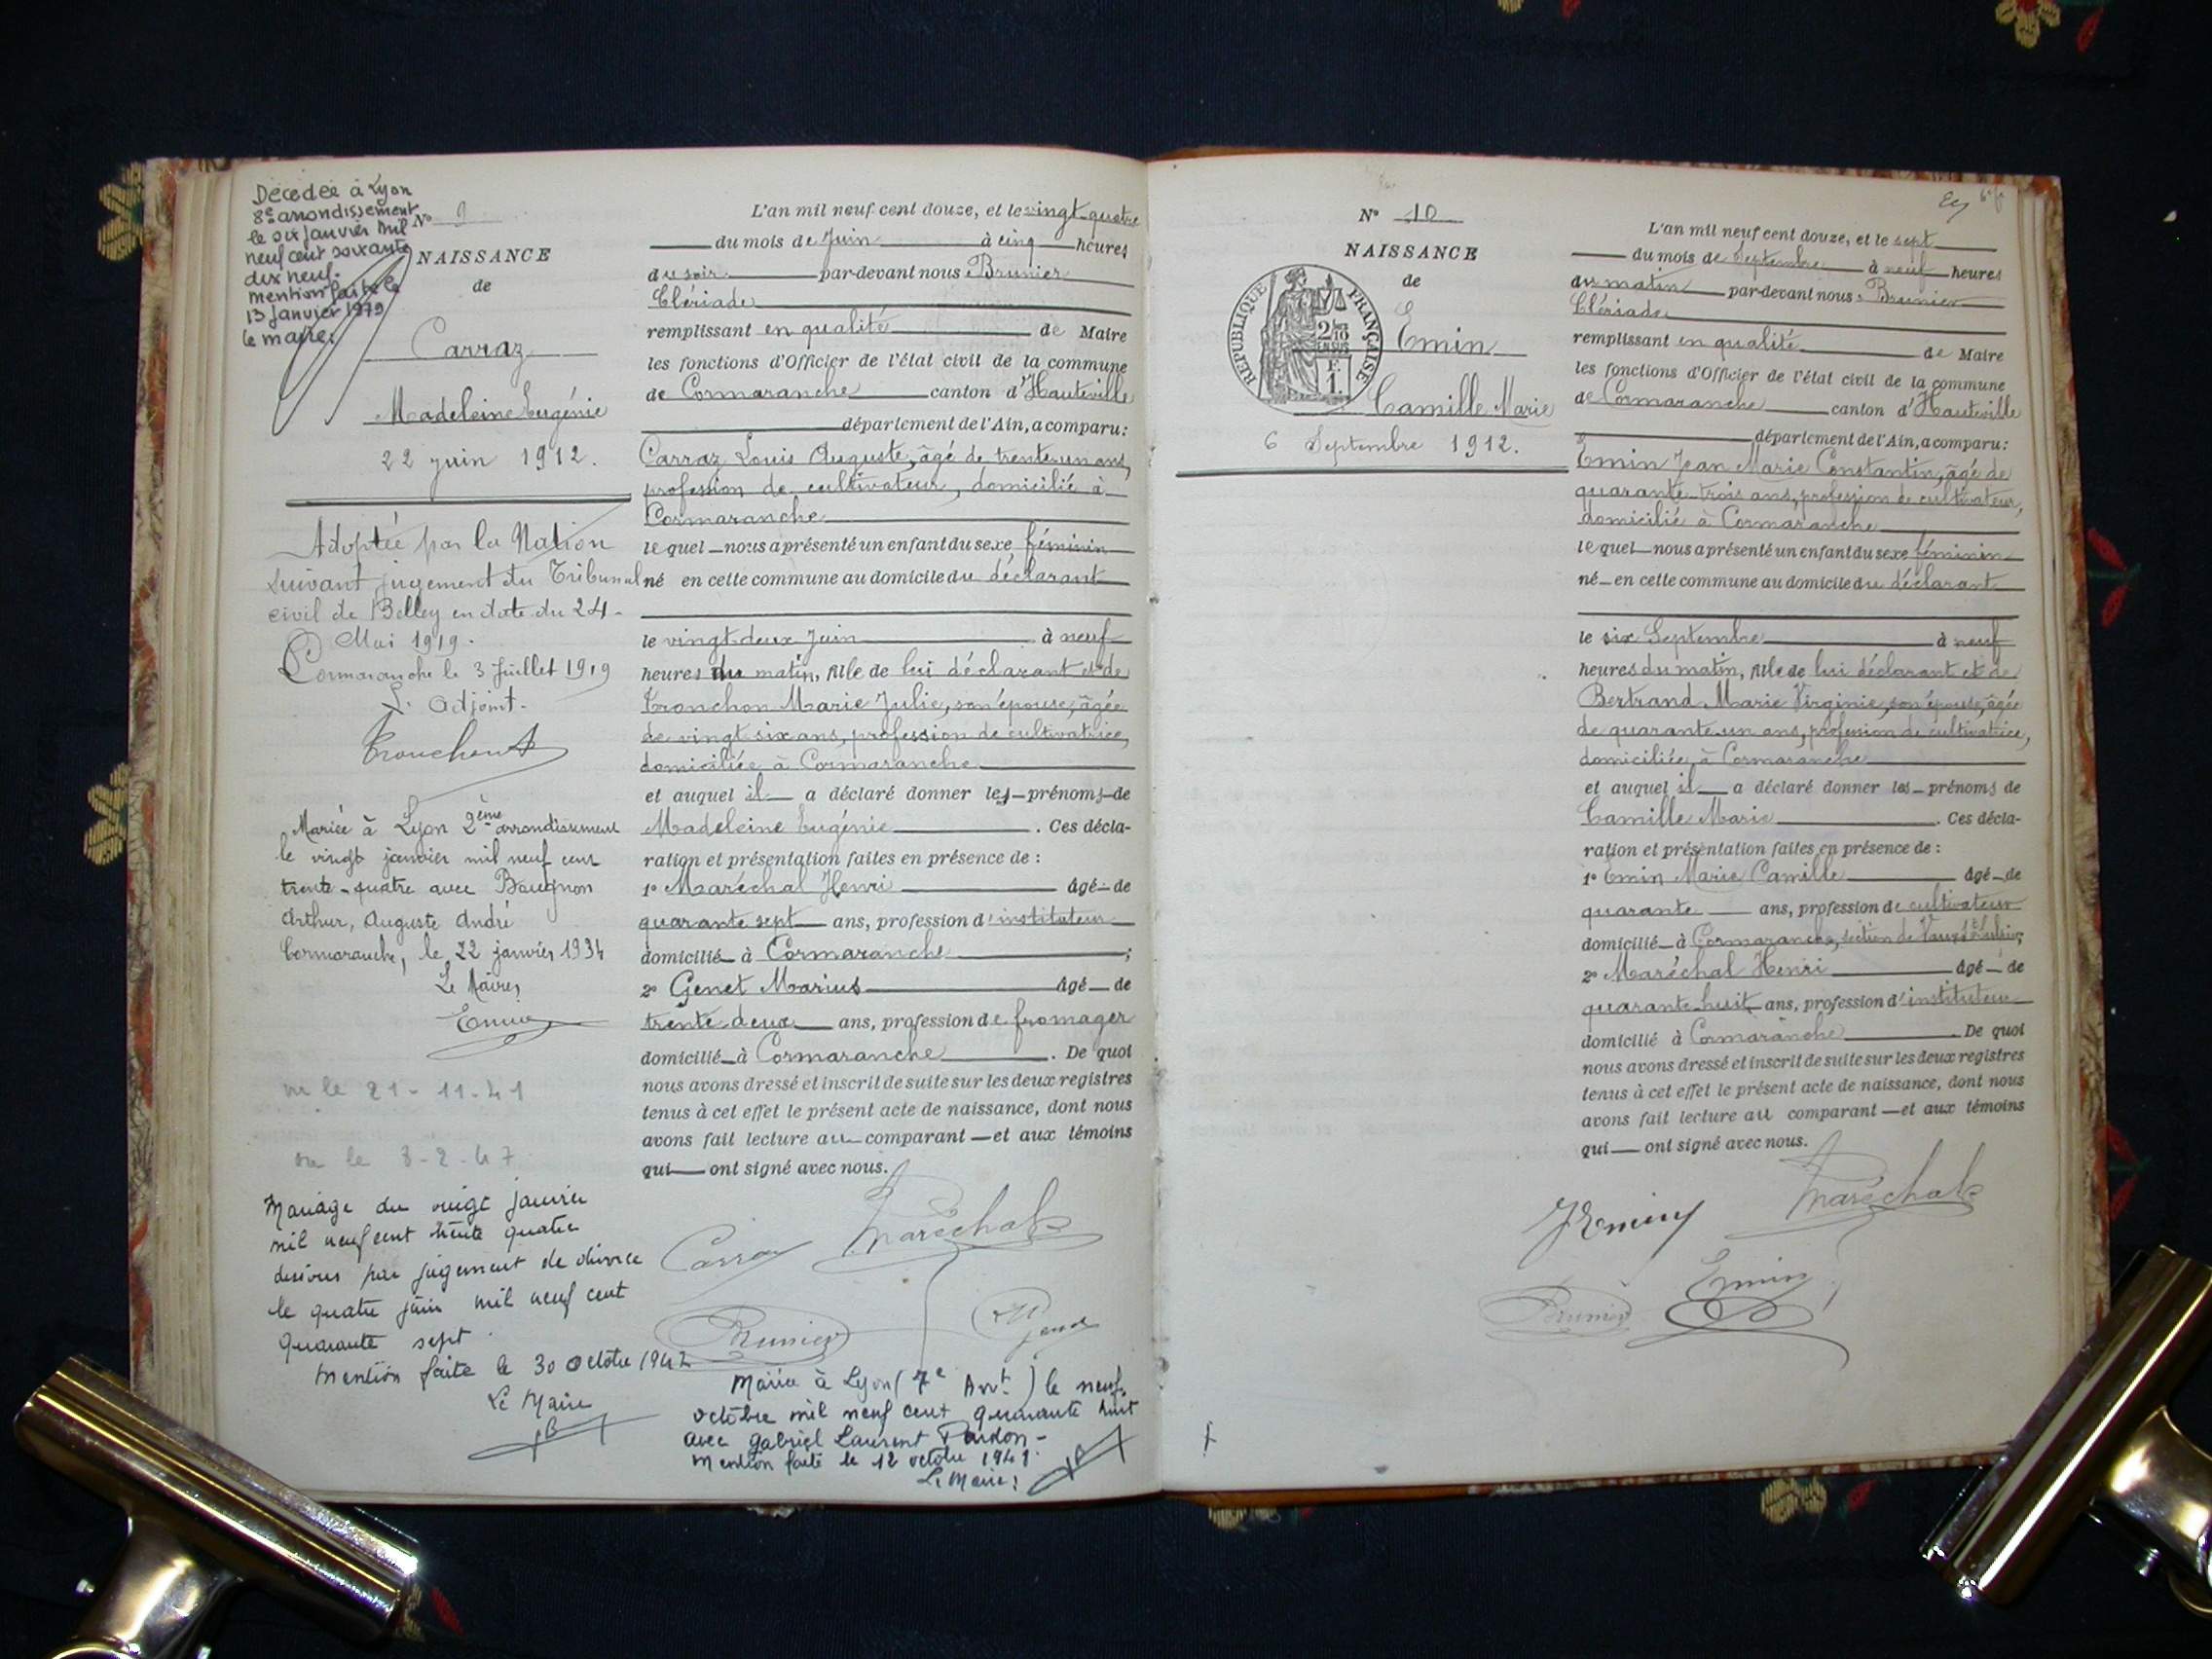 Décédée à Lyon
8e arrondissement
le six janvier mil
neuf cent soixante
dix neuf.
mention faite le
13 janvier 1979
le maire:
N° 9
NAISSANCE
de
Carraz
Madeleine Eugénie
22 juin 1912.
Adoptée par la Nation
suivant jugement du Tribunal
civil de Belley en date du 24
Mai 1919.
Cormaranche le 3 Juillet 1919
L'Adjoint.
Mariée à Lyon 2ème arrondissement
le vingt janvier mil neuf cent
trente-quatre avec
Arthur, Auguste André
Cormaranche, le 22 janvier 1934
Le Maire,
Emin
vu le 21-11-41
vu le 3-2-47
Mariage du vingt janvier
mil neuf cent trente quatre
dissous par jugement de divorce
le quatre juin mil neuf cent
quarante sept
Mention faite le 30 octobre 1947
Le Maire
L'an mil neuf cent douze, et le vingt-quatre
du mois de Juin à cinq heures
du soir par-devant nous Brunier
Clériade
remplissant en qualité de Maire
les fonctions d'Officier de l'état civil de la commune
de Cormaranche canton d'Hauteville
département de l'Ain, a comparu:
Carraz Louis Auguste, âgé de trente-un ans,
profession de cultivateur, domicilié à
Cormaranche
lequel nous a présenté un enfant du sexe féminin
né en cette commune au domicile du déclarant
le vingt-deux Juin à neuf
heures du matin, fille de lui déclarant et de
Tronchon Marie Julie, son épouse, âgée
de vingt six ans, profession de cultivatrice,
domiciliée à Cormaranche
et auquel il a déclaré donner les prénoms de
Madeleine Eugénie. Ces décla-
ration et présentation faites en présence de :
1° Maréchal Henri âgé de
quarante sept ans, profession d'instituteur
domicilié à Cormaranche;
2° Genet Marius âgé de
trente-deux ans, profession de fromager
domicilié à Cormaranche. De quoi
nous avons dressé et inscrit de suite sur les deux registres
tenus à cet effet le présent acte de naissance, dont nous
avons fait lecture au comparant et aux témoins
qui ont signé avec nous.
Carraz Maréchal
Brunier
Mariée à Lyon (7e Arrt.) le neuf
octobre mil neuf cent quarante huit
avec Gabriel Laurent Pardon-
mention faite le 12 octobre 1948.
Le Maire:
N° 10
NAISSANCE
de
RÉPUBLIQUE FRANÇAISE
2/10
EN SUS
F.
1.
Emin
Camille Marie
6 Septembre 1912.
L'an mil neuf cent douze, et le sept
du mois de Septembre à neuf heures
du matin par-devant nous Brunier
Clériade
remplissant en qualité de Maire
les fonctions d'Officier de l'état civil de la commune
de Cormaranche canton d'Hauteville
département de l'Ain, a comparu:
Emin Jean Marie Constantin, âgé de
quarante-trois ans, profession de cultivateur,
domicilié à Cormaranche
lequel nous a présenté un enfant du sexe féminin
né en cette commune au domicile du déclarant
le six Septembre à neuf
heures du matin, fille de lui déclarant et de
Bertrand Marie Virginie, son épouse, âgée
de quarante-un ans, profession de cultivatrice,
domiciliée à Cormaranche
et auquel il a déclaré donner les prénoms de
Camille Marie. Ces décla-
ration et présentation faites en présence de :
1° Emin Marie Camille âgé de
quarante ans, profession de cultivateur
domicilié à Cormaranche, section de
2° Maréchal Henri âgé de
quarante-huit ans, profession d'instituteur
domicilié à Cormaranche. De quoi
nous avons dressé et inscrit de suite sur les deux registres
tenus à cet effet le présent acte de naissance, dont nous
avons fait lecture au comparant et aux témoins
qui ont signé avec nous.
JEmin Maréchal
Brunier Emin